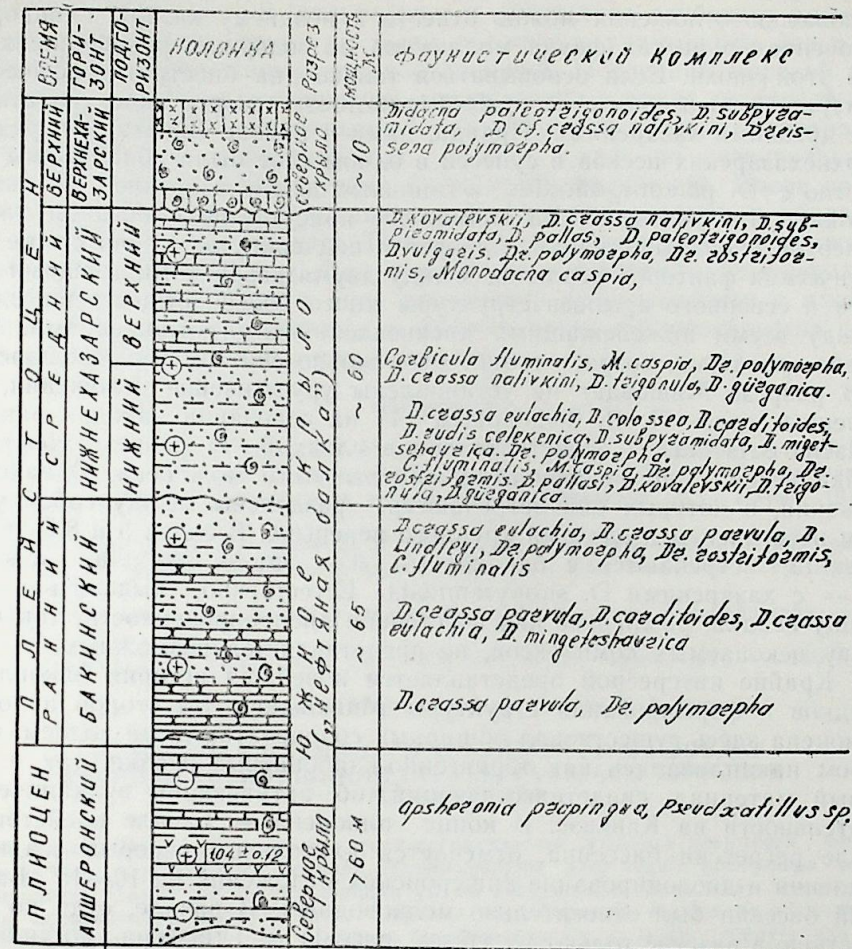 ВРЕМЯ
ГОРИ-
ЗОНТ
ПОДГО-
РИЗОНТ
КОЛОНКА
Разрез
Мощность
м.
Фаунистический комплекс
ПЛЕЙСТОЦЕН
ВЕРХНИЙ
ВЕРХНЕХА-
ЗАРСКИЙ
северное
крыло
~10
Didacna paleotrigonoides, D. subpyra-
midata, D. cf. crassa nalivkini, Dreis-
sena polymorpha.
СРЕДНИЙ
НИЖНЕХАЗАРСКИЙ
ВЕРХНИЙ
D. kovalevskii, D. crassa nalivkini, D. sub-
piramidata, D. pallas, D. paleotrigonoides,
D. vulgaris. Dr. polymorpha, Dr. rostrifor-
mis, Monodacna caspia,
НИЖНИЙ
~60
Corbicula fluminalis, M. caspia, Dr. polymorpha,
D. crassa nalivkini, D. trigonula, D. gürganica.
D. crassa eulachia, D. colossea, D. carditoides,
D. rudis celekenica, D. subpyramidata, D. minget-
schaurica. Dr. polymorpha.
C. fluminalis, M. caspia, Dr. polymorpha, Dr.
rostriformis, D. pallasi, D. kovalevskii, D. trigo-
nula, D. gürganica.
РАННИЙ
БАКИНСКИЙ
Южное крыло
(„нефтяная балка")
~65
D. crassa eulachia, D. crassa parvula, D.
Lindleyi, Dr. polymorpha, Dr. rostriformis,
C. fluminalis
D. crassa parvula, D. carditoides, D. crassa
eulachia, D. mingeteshaurica
D. crassa parvula, Dr. polymorpha
ПЛИОЦЕН
АПШЕРОНСКИЙ
Северное
крыло
760 м
apsheronia propinqua, Pseudcatillus sp.